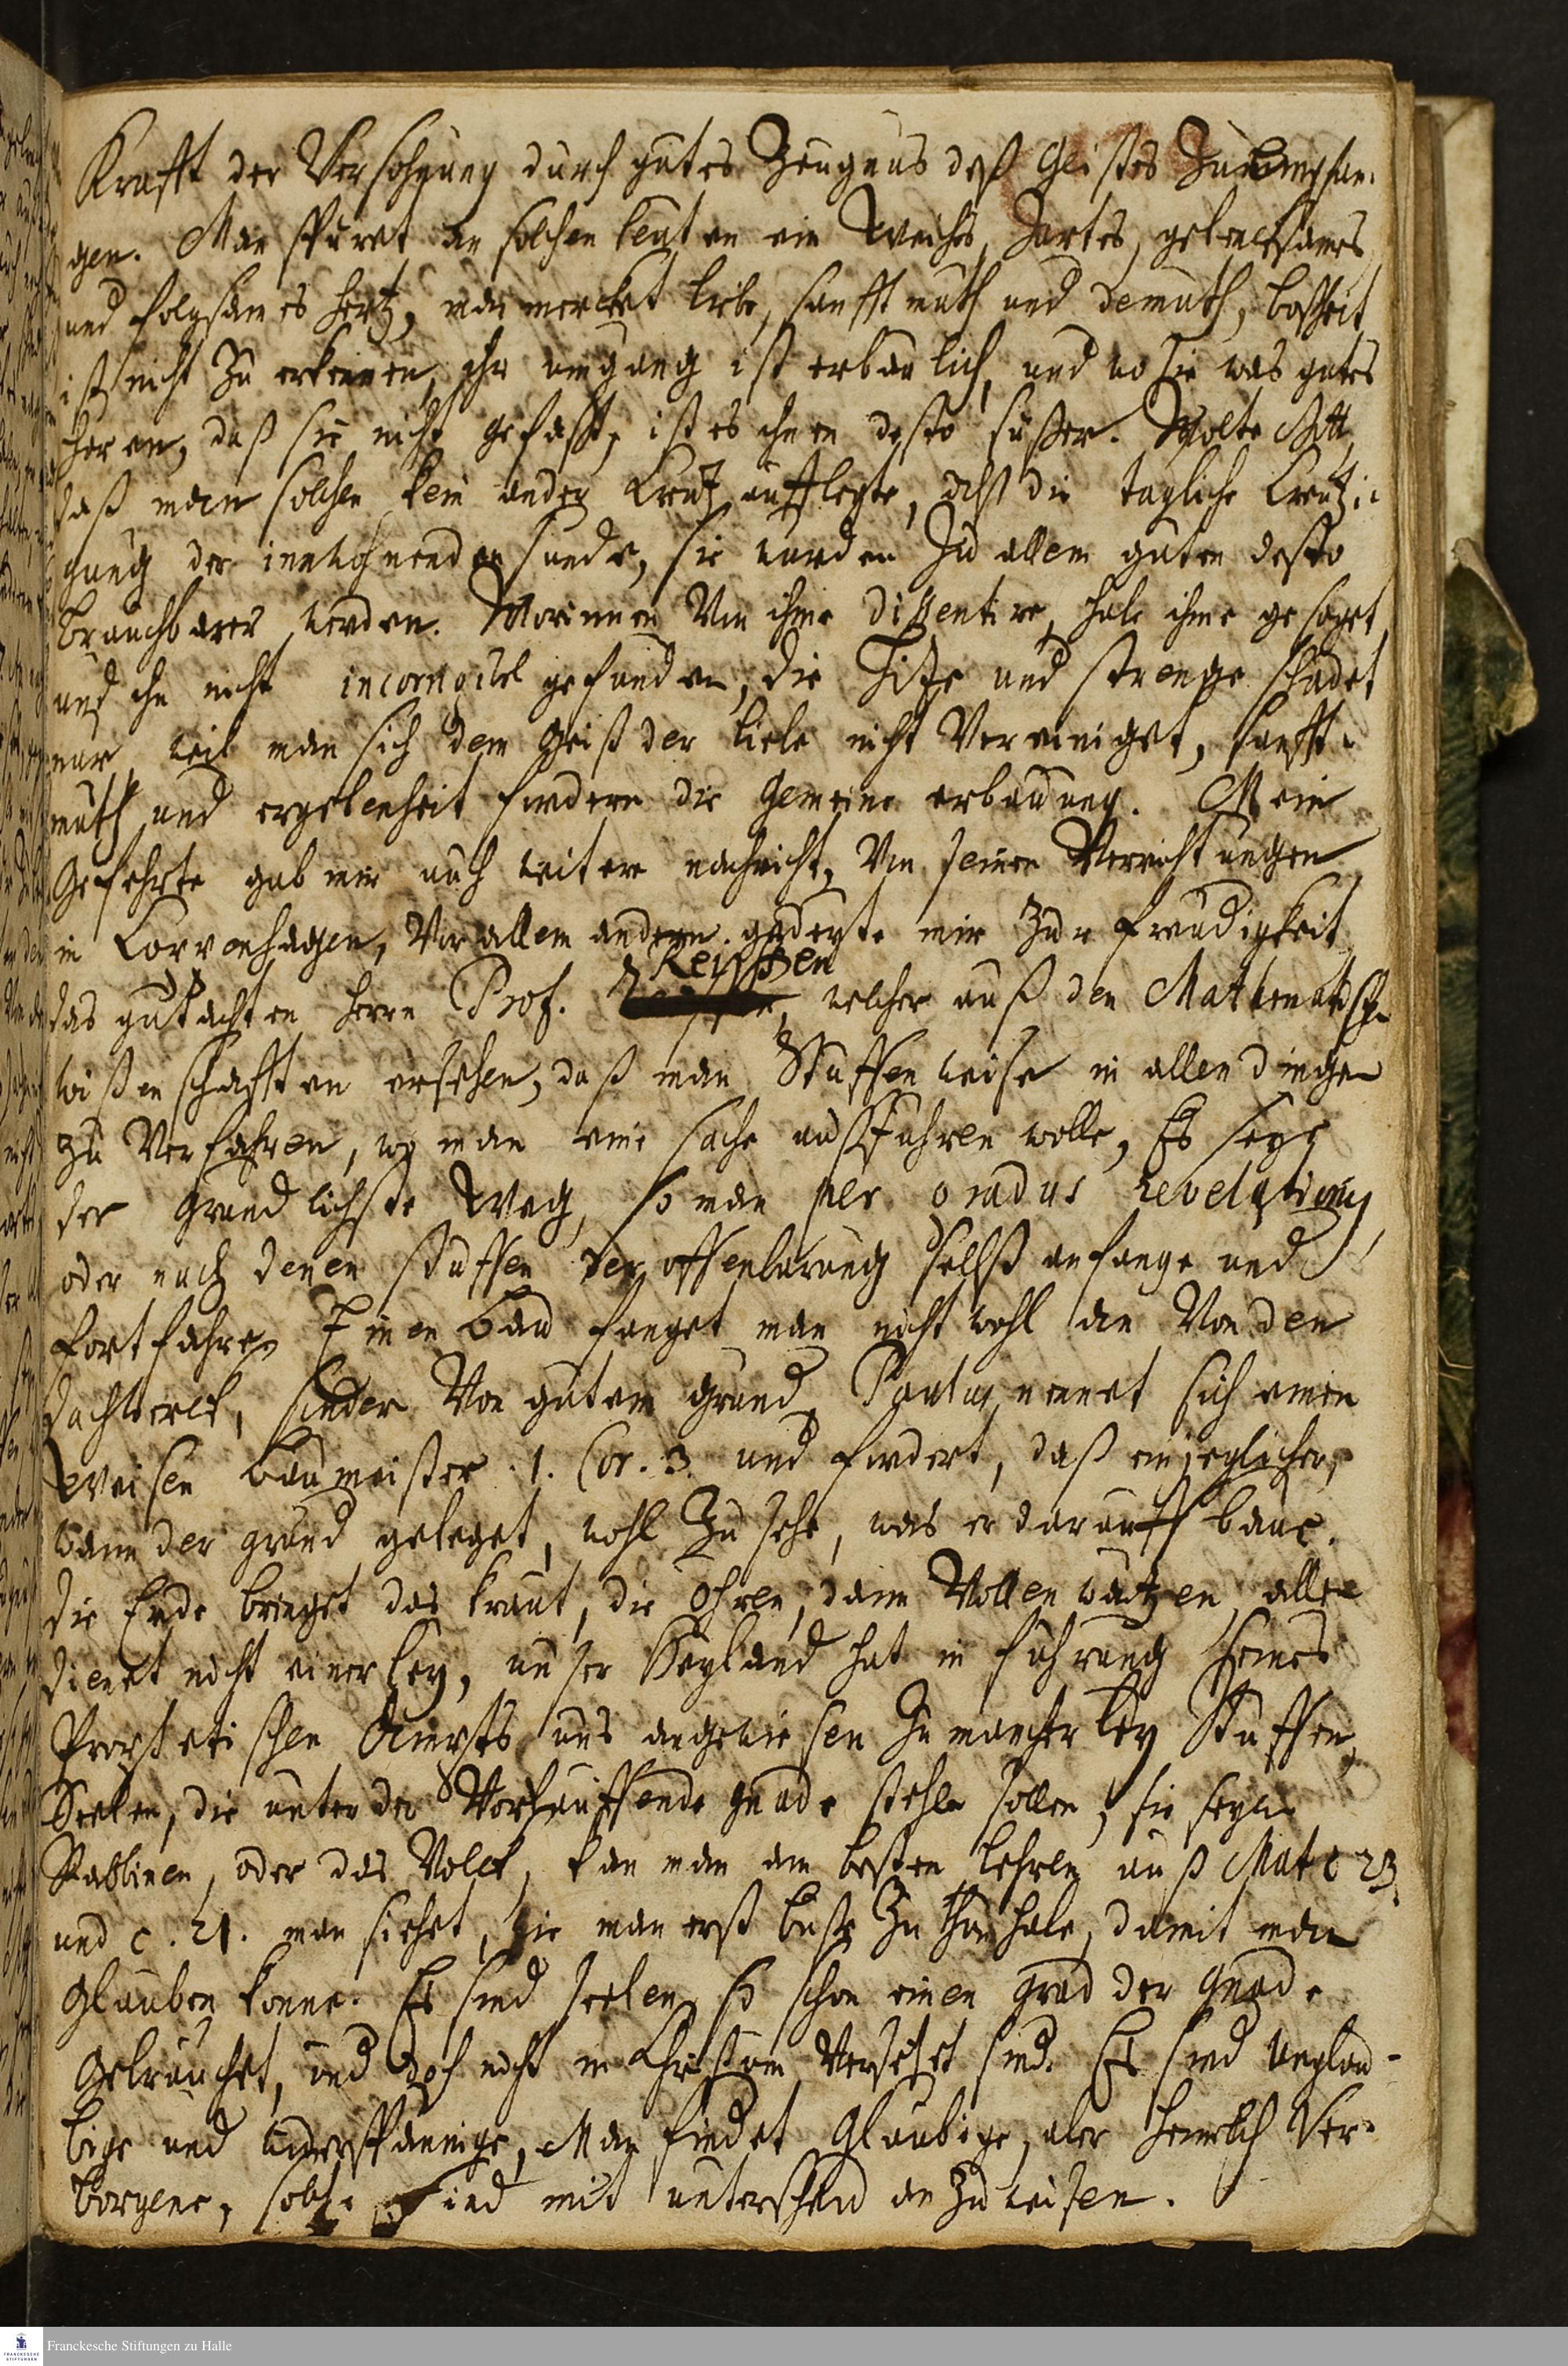 Krafft der Versohnung durch gutes Zeugnus deß Geistes Zu empfan-
gen. Man spüret an solchen leuten ein weiches, zartes, gelencksames
und folgsames hertz, man mercket liebe, sanfftmuth und demuth, boßheit
ist nicht zu erkennen, ihr umgang ist erbaulich, und wo sie was gutes
horen, daß sie nicht gefasst, ist es ihnen desto süßer. Wolte Gott,
daß man solchen kein ander Creutz aufflegte, alß die tagliche Creutzi-
gung der innwohnenden sunde, sie wurden zu allem guten desto
brauchbarer werden. Worinnen von ihme dissentire, habe ihme gesaget
und ihn nicht incorrigibel gefunden, die Hitze und strenge schadet
nur, weil man sich dem Geist der liebe nicht vereiniget, sanfft-
muth und ergebenheit fordern die gemeine erbauung. Mein
Gefehrte gab mir auch weitere nachricht, von seinen Verrichtungen
in Coppenhagen, Vor allem andern gedeyte mir zur freudigkeit
das gutachten herrn Prof. Reipssen, welcher auß den Mathematisch-
wißenschafften ersehen, daß man Stuffenweise in allen dingen
zu Verfahren, wo man eine sache außführen wolle, Es seye
der grundlichste Weg, so man per gradus revelationis
oder nach denen stuffen der offenbarung selbst anfange und
fortfahre. Einen bau fanget man nicht wohl an Von den
dachwerck, sonder Von gutem grund, Paulus nennet sich einen
Weisen baumeister 1. Cor. 3. und fordert, daß ein jeglicher,
wann der grund geleget, wohl zu sehe, was er darauff baue.
die Erde bringet das kraut, die Ähren, dann Vollen waitzen, allen
dienet nicht einerley, unser Heyland hat in führung seines
Prophetischen Ampts uns angewiesen zu mancherley Stuffen,
Seelen, die unter der Vorlauffende gnade stehen sollen, sie seyen
Rabbinen, oder das Volck, kan man am besten lehren auß Mat c 23.
und c. 21. man siehet, wie man erst buße zu thun habe, damit man
Glauben konne. Es sind seelen, so schon einen grad der gnade
Gebrauchet, und doch nicht in Christum Versetzet sind. Es sind unglau-
bige und widerspännige, Man findet Glaubige, aber heimlich Ver-
borgene, solche sind mit unterscheid anzuweisen.
Franckesche Stiftungen zu Halle